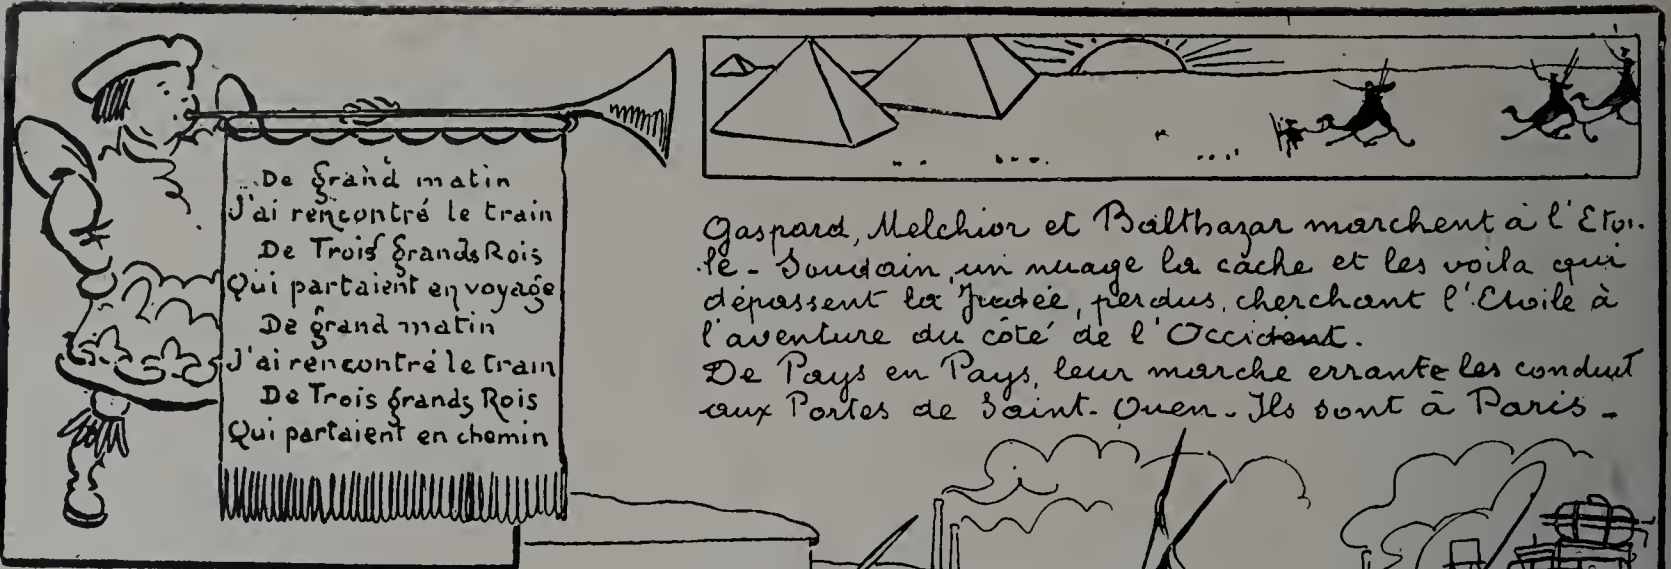 De grand matin
J'ai rencontré le train
De Trois grands Rois
Qui partaient en voyage
De grand matin
J'ai rencontré le train
De Trois grands Rois
Qui partaient en chemin
Gaspard, Melchior et Balthazar marchent à l'Etoi-
le - Soudain, un nuage la cache et les voila qui
dépassent la Judée, perdus, cherchant l'Etoile à
l'aventure du côté de l'Occident.
De Pays en Pays, leur marche errante les conduit
aux Portes de Saint-Ouen - Ils sont à Paris -